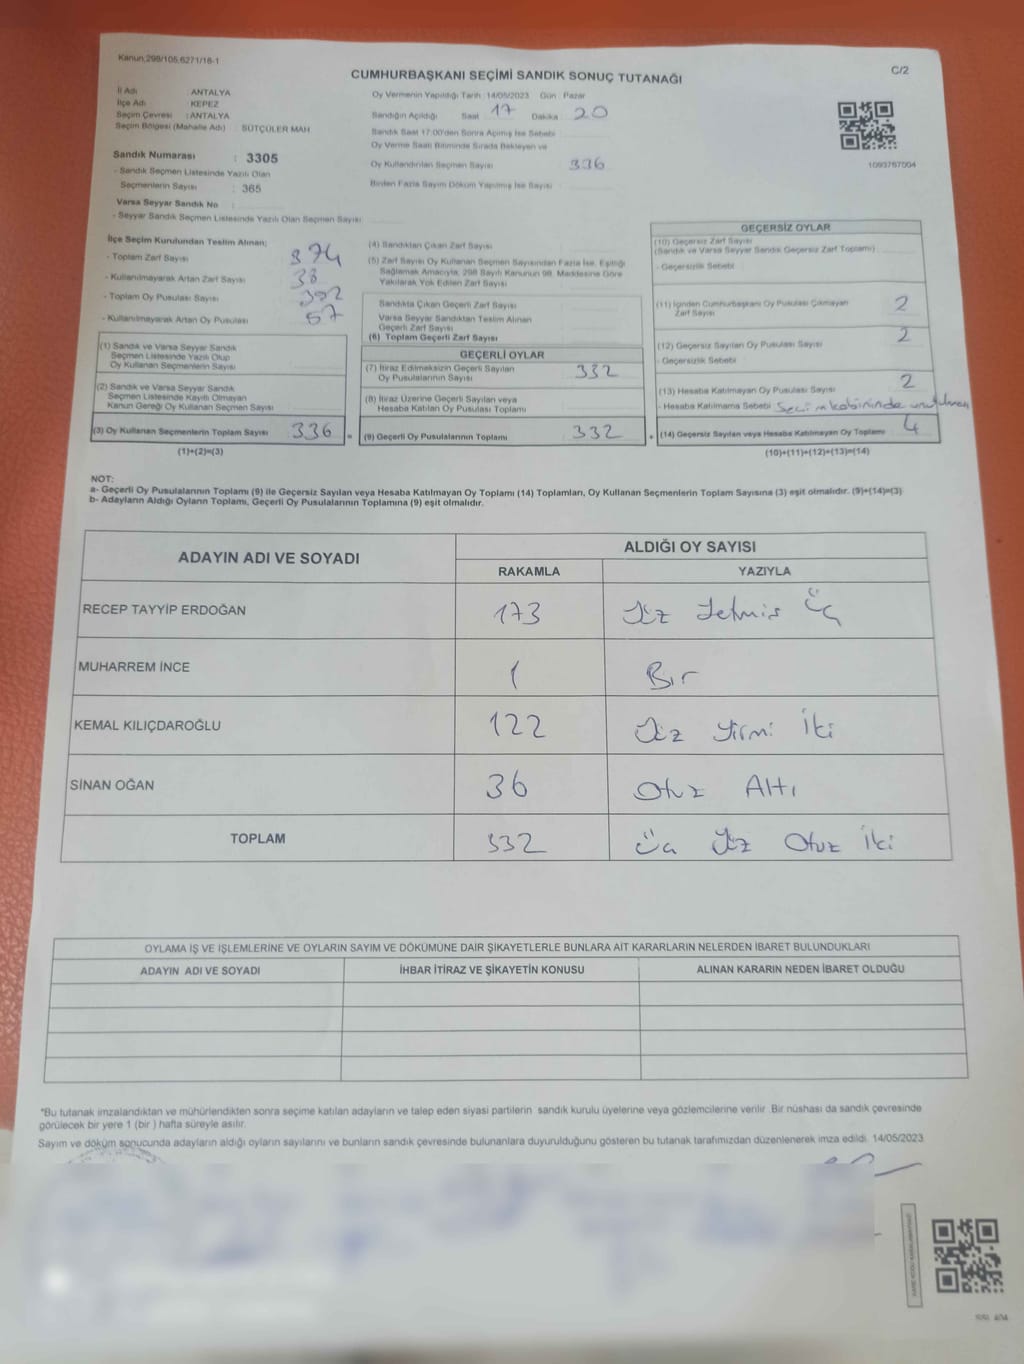 Kanun:298/105,6271/16-1
C/2
CUMHURBAŞKANI SEÇİMİ SANDIK SONUÇ TUTANAĞI
İl Adı : ANTALYA
İlçe Adı : KEPEZ
Seçim Çevresi : ANTALYA
Seçim Bölgesi (Mahalle Adı) : SÜTÇÜLER MAH
Sandık Numarası : 3305
- Sandık Seçmen Listesinde Yazılı Olan
Seçmenlerin Sayısı : 365
Varsa Seyyar Sandık No :
- Seyyar Sandık Seçmen Listesinde Yazılı Olan Seçmen Sayısı
Oy Vermenin Yapıldığı Tarih :14/05/2023 Gün : Pazar
Sandığın Açıldığı Saat 17 Dakika 20
Sandık Saat 17:00'den Sonra Açılmış İse Sebebi
Oy Verme Saati Bitiminde Sırada Bekleyen ve
Oy Kullandırılan Seçmen Sayısı 336
Birden Fazla Sayım Döküm Yapılmış İse Sayısı
1093767004
İlçe Seçim Kurulundan Teslim Alınan;
- Toplam Zarf Sayısı 374
- Kullanılmayarak Artan Zarf Sayısı 38
- Toplam Oy Pusulası Sayısı 392
- Kullanılmayarak Artan Oy Pusulası 57
(1) Sandık ve Varsa Seyyar Sandık
Seçmen Listesinde Yazılı Olup
Oy Kullanan Seçmenlerin Sayısı
(2) Sandık ve Varsa Seyyar Sandık
Seçmen Listesinde Kayıtlı Olmayan
Kanun Gereği Oy Kullanan Seçmen Sayısı
(3) Oy Kullanan Seçmenlerin Toplam Sayısı 336
(1)+(2)=(3)
(4) Sandıktan Çıkan Zarf Sayısı
(5) Zarf Sayısı Oy Kullanan Seçmen Sayısından Fazla İse, Eşitliği
Sağlamak Amacıyla, 298 Sayılı Kanunun 98. Maddesine Göre
Yakılarak Yok Edilen Zarf Sayısı
Sandıkta Çıkan Geçerli Zarf Sayısı
Varsa Seyyar Sandıktan Teslim Alınan
Geçerli Zarf Sayısı
(6) Toplam Geçerli Zarf Sayısı
GEÇERLİ OYLAR
(7) İtiraz Edilmeksizin Geçerli Sayılan
Oy Pusulalarının Sayısı 332
(8) İtiraz Üzerine Geçerli Sayılan veya
Hesaba Katılan Oy Pusulası Toplamı
= (9) Geçerli Oy Pusulalarının Toplamı 332
GEÇERSİZ OYLAR
(10) Geçersiz Zarf Sayısı
(Sandık ve Varsa Seyyar Sandık Geçersiz Zarf Toplamı)
- Geçersizlik Sebebi
(11) İçinden Cumhurbaşkanı Oy Pusulası Çıkmayan
Zarf Sayısı 2
(12) Geçersiz Sayılan Oy Pusulası Sayısı 2
- Geçersizlik Sebebi
(13) Hesaba Katılmayan Oy Pusulası Sayısı 2
- Hesaba Katılmama Sebebi Seçim kabininde unutulmuş
+ (14) Geçersiz Sayılan veya Hesaba Katılmayan Oy Toplamı 4
(10)+(11)+(12)+(13)=(14)
NOT:
a- Geçerli Oy Pusulalarının Toplamı (9) ile Geçersiz Sayılan veya Hesaba Katılmayan Oy Toplamı (14) Toplamları, Oy Kullanan Seçmenlerin Toplam Sayısına (3) eşit olmalıdır. (9)+(14)=(3)
b- Adayların Aldığı Oyların Toplamı, Geçerli Oy Pusulalarının Toplamına (9) eşit olmalıdır.
ADAYIN ADI VE SOYADI
ALDIĞI OY SAYISI
RAKAMLA YAZIYLA
RECEP TAYYİP ERDOĞAN 173 Yüz Yetmiş Üç
MUHARREM İNCE 1 Bir
KEMAL KILIÇDAROĞLU 122 Yüz Yirmi İki
SİNAN OĞAN 36 Otuz Altı
TOPLAM 332 Üç Yüz Otuz İki
OYLAMA İŞ VE İŞLEMLERİNE VE OYLARIN SAYIM VE DÖKÜMÜNE DAİR ŞİKAYETLERLE BUNLARA AİT KARARLARIN NELERDEN İBARET BULUNDUKLARI
ADAYIN ADI VE SOYADI İHBAR İTİRAZ VE ŞİKAYETİN KONUSU ALINAN KARARIN NEDEN İBARET OLDUĞU
*Bu tutanak imzalandıktan ve mühürlendikten sonra seçime katılan adayların ve talep eden siyasi partilerin sandık kurulu üyelerine veya gözlemcilerine verilir. Bir nüshası da sandık çevresinde
görülecek bir yere 1 (bir ) hafta süreyle asılır.
Sayım ve döküm sonucunda adayların aldığı oyların sayılarını ve bunların sandık çevresinde bulunanlara duyurulduğunu gösteren bu tutanak tarafımızdan düzenlenerek imza edildi. 14/05/2023